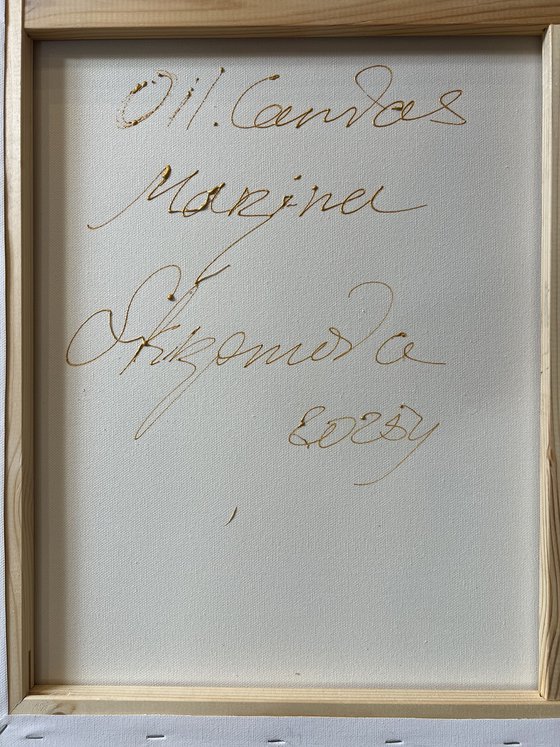 Oil. Canvas
Marina
Skromova
2025y